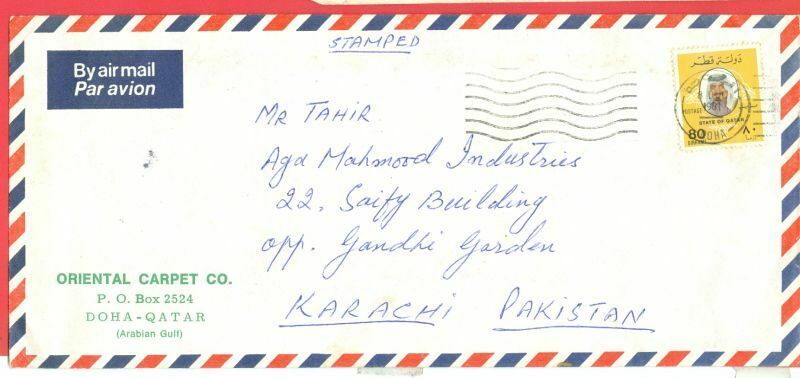 STAMPED
By airmail
Par avion
دولة قطر
POSTAGE
STATE OF QATAR
80
٨٠
DOHA
Mr TAHIR
Aga Mahmood Industries
22, Saify Building
opp. Gandhi Garden
KARACHI PAKISTAN
ORIENTAL CARPET CO.
P. O. Box 2524
DOHA - QATAR
(Arabian Gulf)